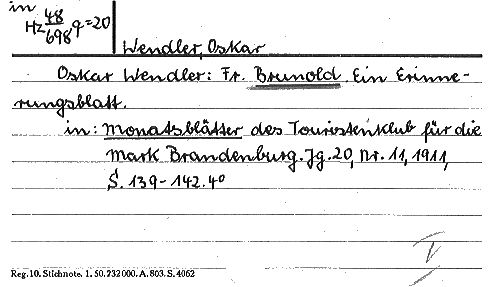 in
Hz 48/698 q=20
Wendler, Oskar
Oskar Wendler: Fr. Brunold. Ein Erinne-
rungsblatt.
in: Monatsblätter des Touristenklub für die
Mark Brandenburg. Jg. 20, Nr. 11, 1911,
S. 139-142. 4°
Reg. 10. Stichnote. 1. 50. 232 000. A. 803. S. 4062